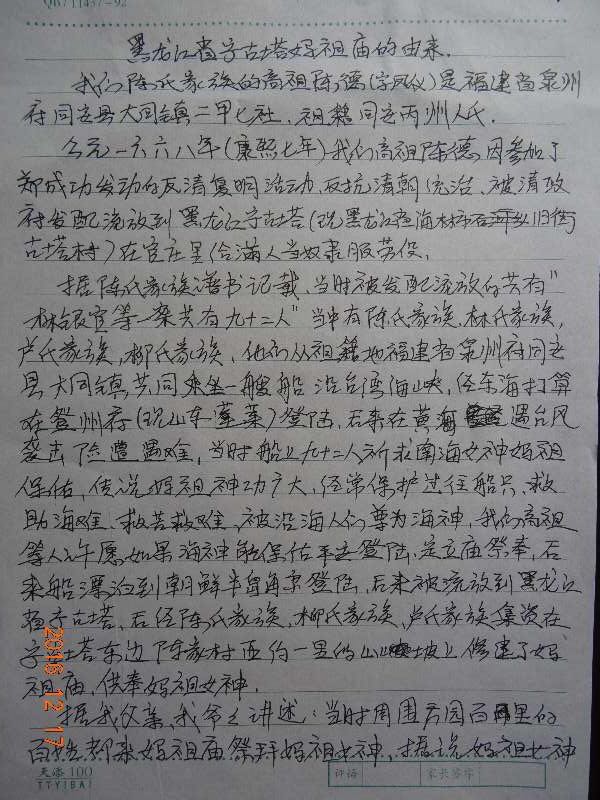 QB/T1437-92
黑龙江省宁古塔妈祖庙的由来.
我们陈氏家族的高祖陈德(字凤仪)是福建省泉州
府同安县大同镇二甲七社、祖籍同安丙洲人氏.
公元一六六八年(康熙七年)我们高祖陈德因参加了
郑成功发动的反清复明活动、反抗清朝统治、被清政
府发配流放到黑龙江宁古塔(现黑龙江省海林市旧街
古塔村)在官庄里(给满人当奴隶服劳役.
据陈氏家族谱书记载、当时被发配流放的共有"
林银官等一案共有九十二人"当中有陈氏家族、林氏家族、
卢氏家族、柳氏家族、他们从祖籍地福建省泉州府同安
县大同镇共同乘坐一艘船沿台湾海峡、经东海打算
在登州府(现山东蓬莱)登陆、后来在黄海遇台风
袭击险遭遇难、当时船上九十二人祈求南海女神妈祖
保佑、传说妈祖神功广大、经常保护过往船只、救
助海难、救苦救难、被沿海人们尊为海神、我们高祖
等人许愿如果海神能保佑平安登陆、定立庙祭奉、后
来船漂泊到朝鲜半岛海东登陆、后来被流放到黑龙江
省宁古塔、后经陈氏家族、柳氏家族、卢氏家族集资在
宁古塔东边陈家村西约一里的山坡上修建了妈
祖庙、供奉妈祖女神.
据我父亲、我爷爷讲述:当时周围方圆百里的
百姓都来妈祖庙祭拜妈祖女神、据说妈祖女神
2016 12 17
天添 100
TTYIBAI
评语
家长签字